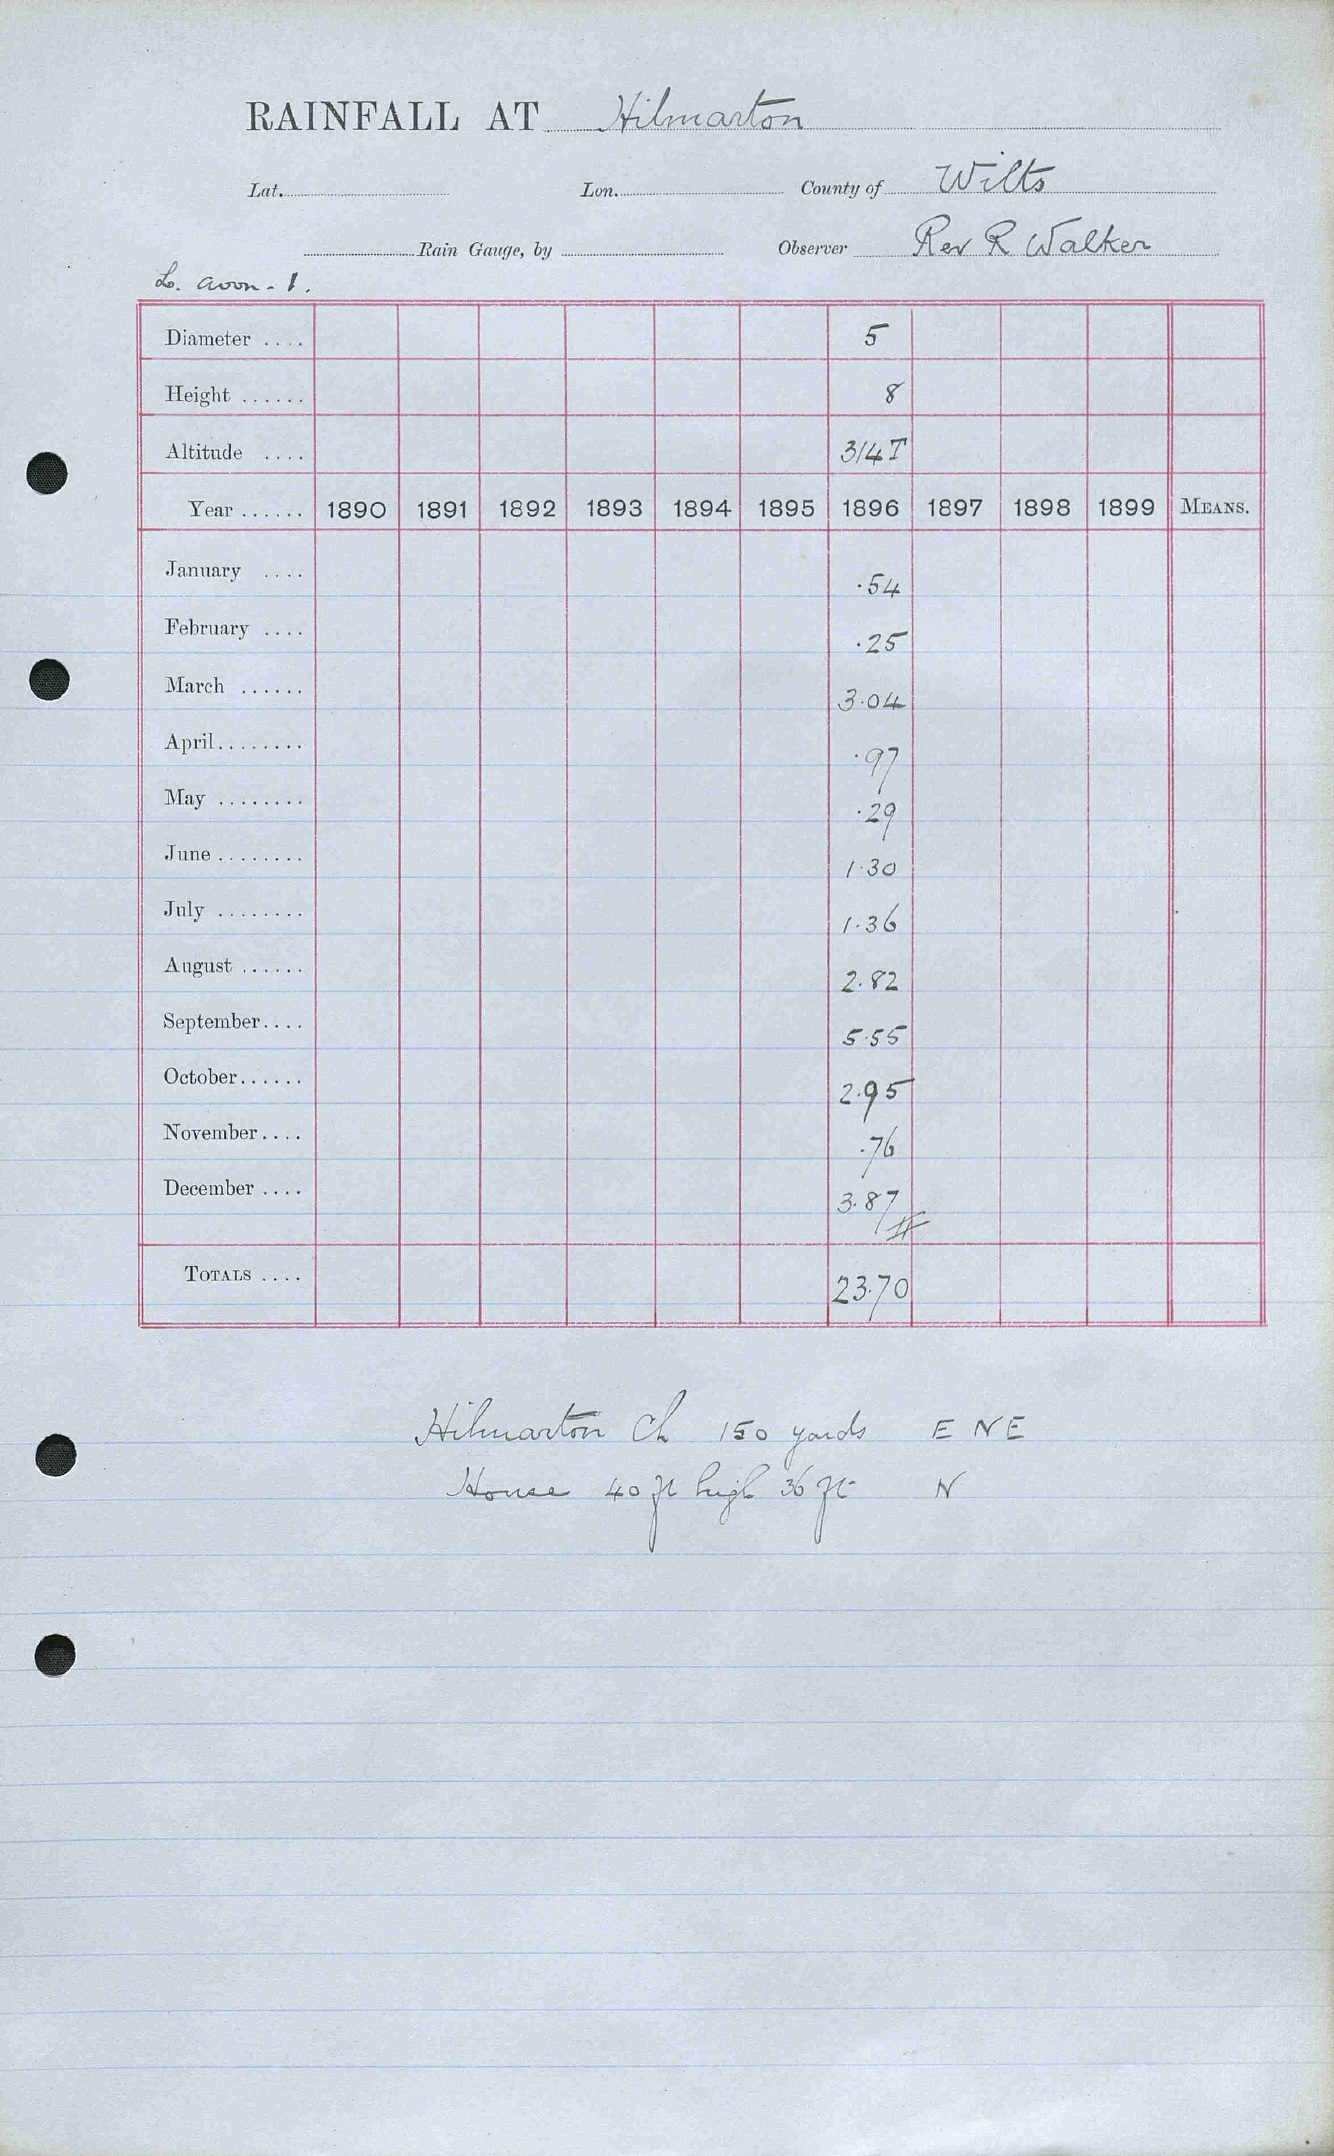 RAINFALL AT Hilmarton
Lat. Lon. County of Wilts
Rain Gauge, by Observer Rev R Walker
L. Avon - 1.
Diameter .... 5
Height ...... 8
Altitude .... 314 T
Year ...... 1890 1891 1892 1893 1894 1895 1896 1897 1898 1899 MEANS.
January .... .54
February .... .25
March ...... 3.04
April........ .97
May ........ .29
June ........ 1.30
July ........ 1.36
August ...... 2.82
September.... 5.55
October...... 2.95
November.... .76
December .... 3.87
TOTALS .... 23.70
Hilmarton Ch 150 yards E NE
House 40 ft high 36 ft N